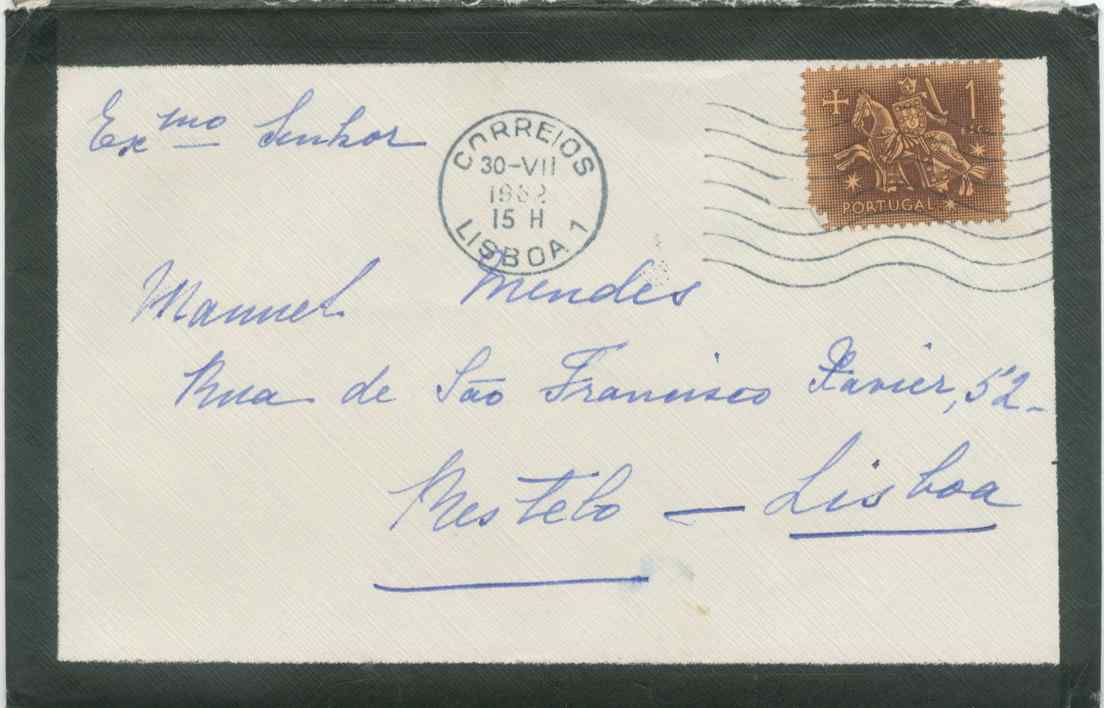 Exmo Senhor
CORREIOS
30-VII
1962
15 H
LISBOA 1
1
PORTUGAL
Manuel Mendes
Rua de São Francisco Xavier, 52-
Restelo — Lisboa